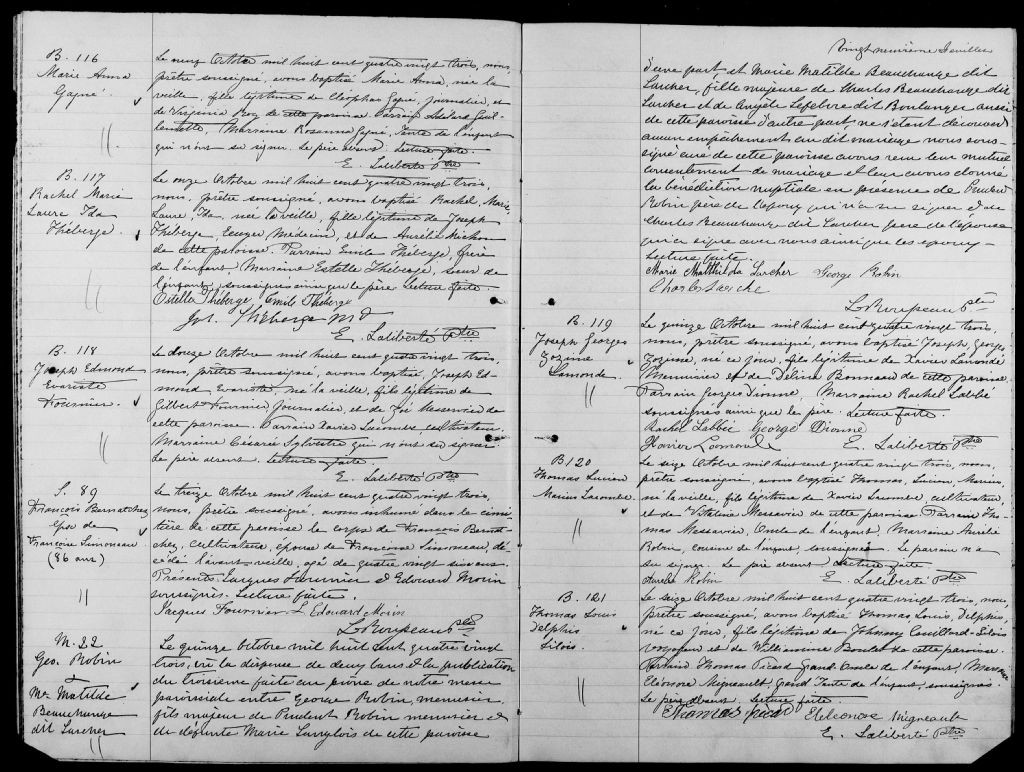 B. 116
Marie Anna
Gagné
Le neuf Octobre mil huit cent quatre vingt trois, nous,
prêtre soussigné, avons baptisé Marie Anna, née la
veille, fille légitime de Cléophas Gagné, Journalier, et
de Virginia Roy de cette paroisse. Parrain
Marraine Rosanna Gagné, Tante de l'enfant
qui n'ont su signer. Le père absent. Lecture faite.
E. Laliberté Ptre
B. 117
Rachel Marie
Laure Ida
Théberge
Le onze Octobre mil huit cent quatre vingt trois,
nous, prêtre soussigné, avons baptisé Rachel, Marie,
Laure, Ida, née la veille, fille légitime de Joseph
Théberge Ecuyer Médecin, et de Aurélie Michon
de cette paroisse. Parrain Emile Théberge, frère
de l'enfant, Marraine Estelle Théberge, sœur de
l'enfant, soussignés ainsi que le père. Lecture faite.
Estelle Théberge Emil Théberge
Jos. Théberge MD
E. Laliberté Ptre
B. 118
Joseph Edmond
Evariste
Fournier
Le douze Octobre mil huit cent quatre vingt trois,
nous, prêtre soussigné, avons baptisé, Joseph Ed-
mond, Evariste, né la veille, fils légitime de
Gilbert Fournier Journalier, et de Zoé Messervier de
cette paroisse. Parrain Xavier Lacombe cultivateur,
Marraine Césarie Sylvestre qui n'ont su signer.
Le père absent. Lecture faite.
E. Laliberté Ptre
S. 89
François Bernatchez
Epse de
Françoise Simoneau
(86 ans)
Le treize Octobre mil huit cent quatre vingt trois,
nous, prêtre soussigné, avons inhumé dans le cime-
tière de cette paroisse le corps de François Bernat-
chez, Cultivateur, époux de Françoise Simoneau, dé-
cédé l'avant veille, agé de quatre vingt six ans.
Présents Jacques Fournier et Edouard Morin
soussignés. Lecture faite.
Jacques Fournier L. Edouard Morin
L. Roupeau Ptre
M. 22
Geo. Robin
&
Me Matilde
Beauchange
dit Larcher
Le quinze octobre mil huit cent quatre vingt
trois, vu la dispense de deux bans et la publication
du troisième faite au prône de notre messe
paroissiale entre George Robin, menuisier
fils majeur de Prudent Robin menuisier et
de défunte Marie Langlois de cette paroisse
Vingt neuvième feuillet
d'une part, et Marie Matilde Beauchange dit
Larcher, fille majeure de Charles Beauchange dit
Larcher et de Angèle Lefebvre dit Boulanger aussi
de cette paroisse d'autre part, ne s'étant découvert
aucun empêchement au dit mariage nous sous-
signé curé de cette paroisse avons reçu leur mutuel
consentement de mariage et leur avons donné
la bénédiction nuptiale en présence de Prudent
Robin père de l'époux qui n'a su signer et de
Charles Beauchange dit Larcher père de l'épouse
qui a signé avec nous ainsi que les époux
Lecture faite.
Marie Matthilda Larcher George Robin
Charles Larche
L. Roupeau Ptre
B. 119
Joseph Georges
Zozime
Lamonde
Le quinze Octobre mil huit cent quatre vingt trois,
nous, prêtre soussigné, avons baptisé Joseph, Georges
Zozime, né ce jour, fils légitime de Xavier Lamonde
Menuisier et de Délina Bonneau de cette paroisse.
Parrain Georges Dionne, Marraine Rachel Labbé
soussignés ainsi que le père. Lecture faite.
Rachel Labbée George Dionne
Xavier Lamond E. Laliberté Ptre
B 120
Thomas Lucien
Marius Lacombe
Le seize Octobre mil huit cent quatre vingt trois, nous,
prêtre soussigné, avons baptisé Thomas, Lucien, Marius,
né la veille, fils légitime de Xavier Lacombe, cultivateur,
et de Messervier de cette paroisse Parrain Tho-
mas Messervier, Oncle de l'enfant, Marraine Aurélie
Robin, cousine de l'enfant soussignée. Le parrain n'a
su signer. Le père absent Lecture faite.
Aurelie Robin E. Laliberté Ptre
B. 121
Thomas Louis
Delphis
Silois
Le seize Octobre mil huit cent quatre vingt trois, nous
prêtre soussigné, avons baptisé Thomas, Louis, Delphis,
né ce jour, fils légitime de Johnny Couillard-Silois
voyageur et de Willielmine Boulet de cette paroisse.
Parrain Thomas Picard Grand Oncle de l'enfant, Marraine
Eléonore Migneault, Grand Tante de l'enfant, soussignés.
Le père absent. Lecture faite.
Thomas Picar Eleleonore Migneault
E. Laliberté Ptre